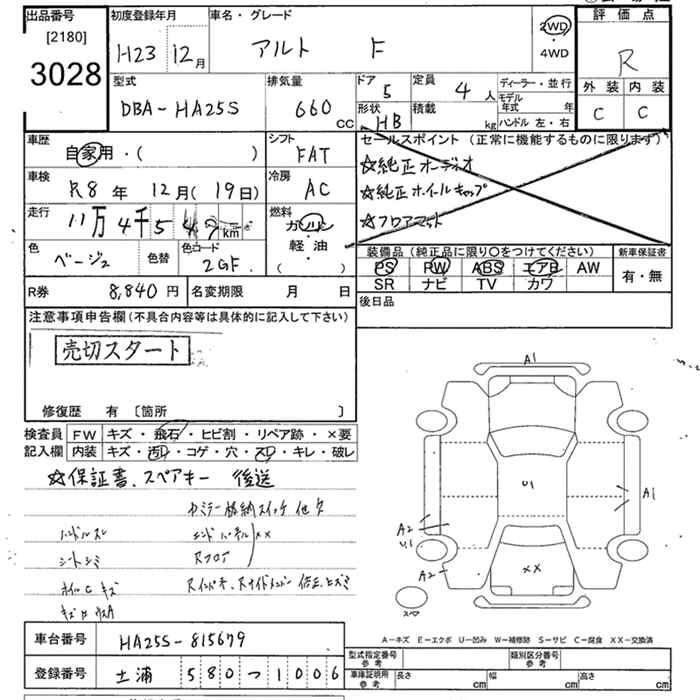 出品番号 初度登録年月 車名・グレード 評価点
[2180]
3028
H23 12月 アルト F 2WD・4WD R
型式 排気量 ドア 定員 ディーラー・並行
DBA-HA25S 660CC 5 4人 モデル年式 年
形状 HB 積載 kg ハンドル 左・右
外装 内装
C C
車歴 自家用・( )
シフト FAT
セールスポイント(正常に機能するものに限ります)
☆純正オーディオ
☆純正ホイルキャップ
☆フロアマット
車検 R8年 12月(19日)
冷房 AC
走行 11万4千5 km
燃料 ガソリン 軽・油 ・( )
色 ベージュ 色替 色コード 2GF
装備品(純正品に限り○をつけてください) 新車保証書
PS PW ABS エアB AW 有・無
SR ナビ TV カワ
R券 8,840円 名変期限 月 日
後日品
注意事項申告欄(不具合内容等は具体的に記入して下さい)
売切スタート
修復歴 有 〔箇所 〕
検査員 FW キズ・飛石・ヒビ割・リペア跡・×要
記入欄 内装 キズ・汚れ・コゲ・穴・スレ・キレ・破レ
☆保証書、スペアキー 後送
ハンドルスレ
シートシミ
ホイルCキズ
A1
U1
A1
A2
U1
A2
XX
スペア
A-キズ E-エクボ U-凹み W-補修跡 S-サビ C-腐食 XX-交換済
車台番号 HA25S-815679
登録番号 土浦 580 つ 1006
型式指定番号 参考 類別区分番号 参考
車庫証明用 参考 長さ cm 幅 cm 高さ cm